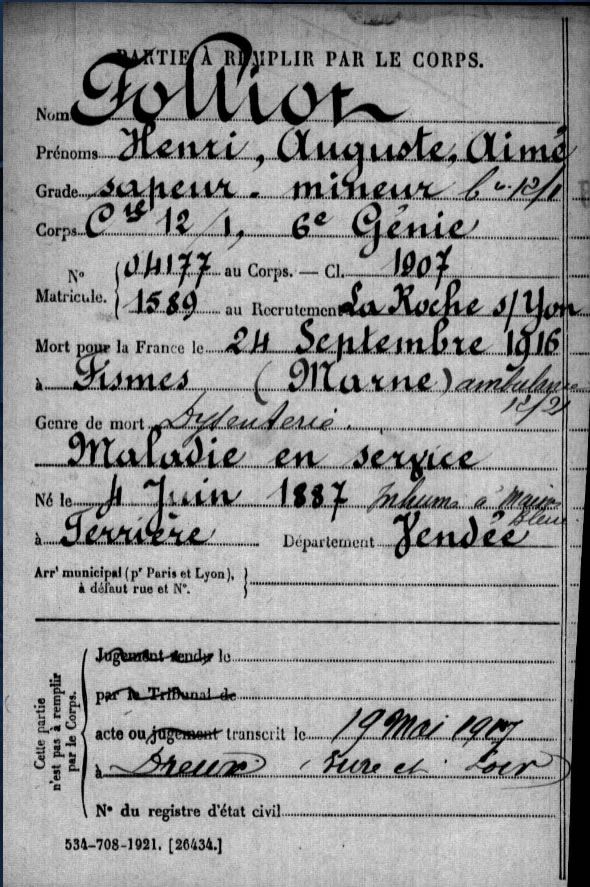 PARTIE À REMPLIR PAR LE CORPS.
Nom Folliot
Prénoms Henri, Auguste, Aimé
Grade sapeur - mineur
Corps Cie 12/1, 6e Génie
No Matricule. 04177 au Corps. — Cl. 1907
1589 au Recrutement La Roche s/Yon
Mort pour la France le 24 Septembre 1916
à Fismes (Marne) ambulance
Genre de mort Dysenterie.
Maladie en service
Né le 4 Juin 1887 Inhumé à Maison
Bleue
à Ferrière Département Vendée
Arrt municipal (pr Paris et Lyon),
à défaut rue et No.
Cette partie
n'est pas à remplir
par le Corps.
Jugement rendu le
par le Tribunal de
acte ou jugement transcrit le 19 Mai 1917
à Dreux (Eure et Loir)
No du registre d'état civil
534-708-1921. [26434.]